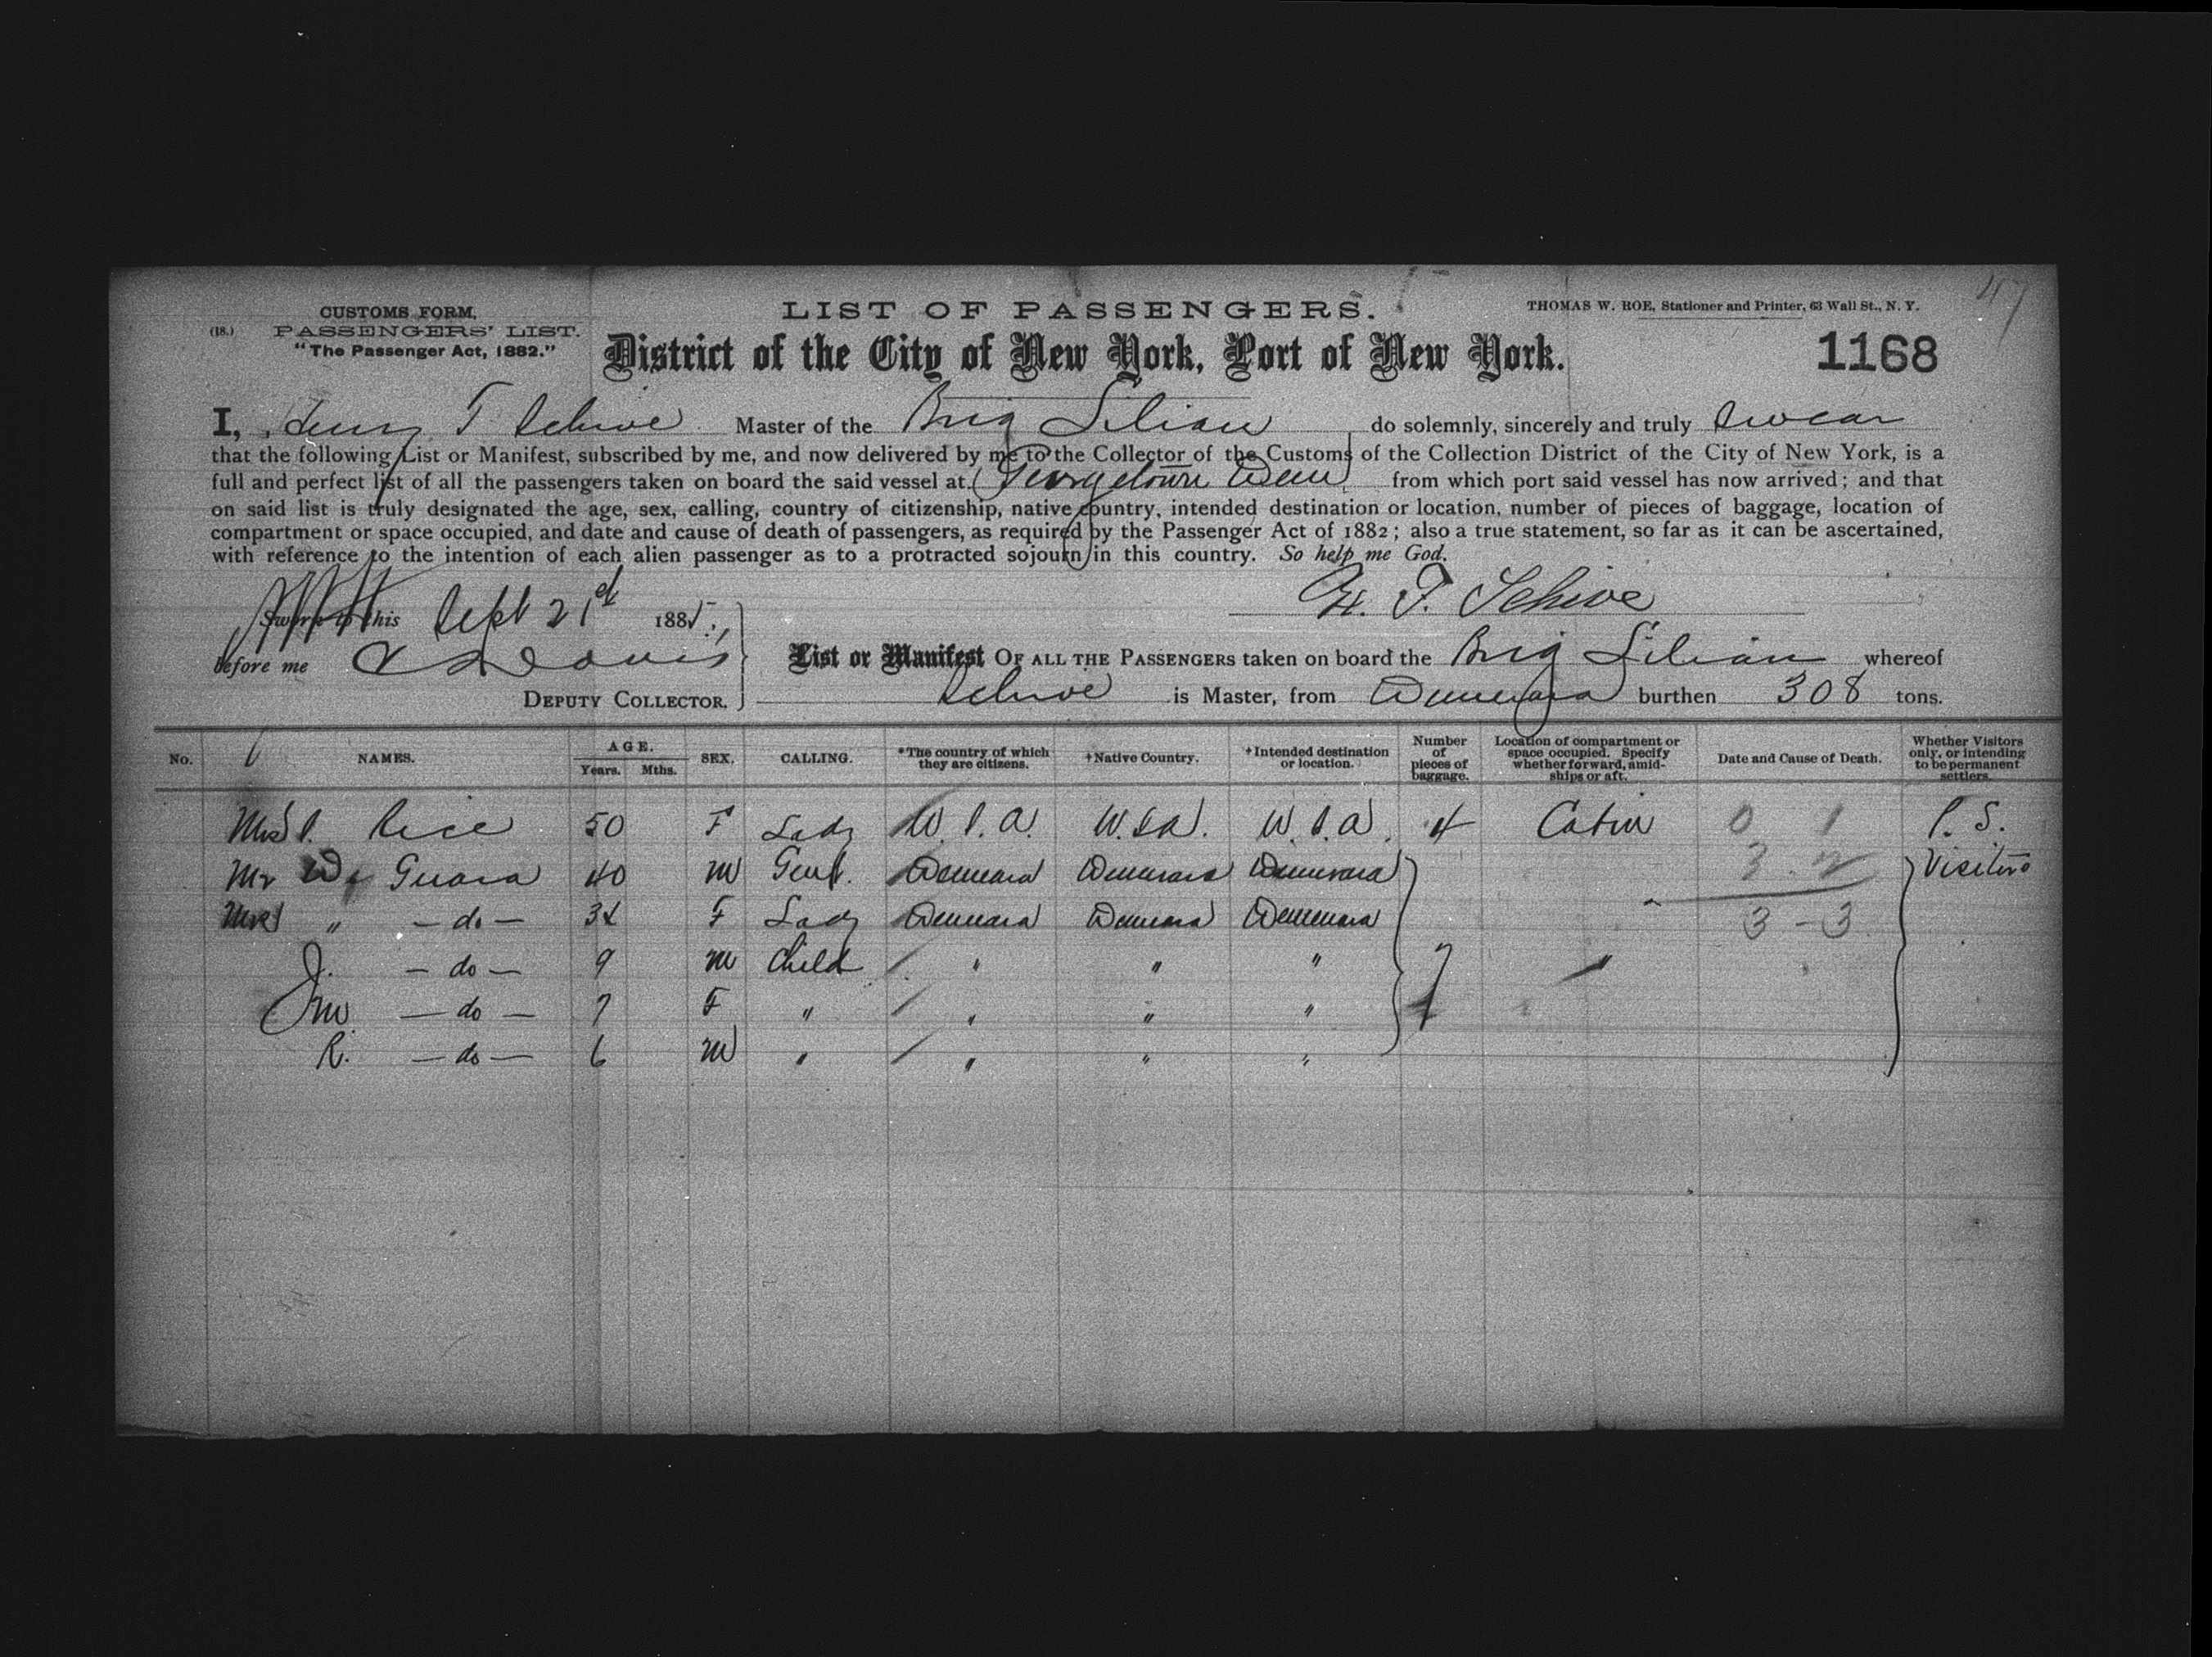 47
CUSTOMS FORM.
(18.) PASSENGERS' LIST.
"The Passenger Act, 1882."
LIST OF PASSENGERS.
THOMAS W. ROE, Stationer and Printer, 63 Wall St., N. Y.
District of the City of New York, Port of New York.
1168
I, Henry T Schive Master of the Brig Lilian do solemnly, sincerely and truly swear
that the following List or Manifest, subscribed by me, and now delivered by me to the Collector of the Customs of the Collection District of the City of New York, is a
full and perfect list of all the passengers taken on board the said vessel at Georgetown Dem from which port said vessel has now arrived; and that
on said list is truly designated the age, sex, calling, country of citizenship, native country, intended destination or location, number of pieces of baggage, location of
compartment or space occupied, and date and cause of death of passengers, as required by the Passenger Act of 1882; also a true statement, so far as it can be ascertained,
with reference to the intention of each alien passenger as to a protracted sojourn in this country. So help me God.
Sworn to this Sept 21st 1885.
H. T. Schive
before me Davis
DEPUTY COLLECTOR.
List or Manifest OF ALL THE PASSENGERS taken on board the Brig Lilian whereof
Schive is Master, from Demerara burthen 308 tons.
No. NAMES. AGE. Years. Mths. SEX. CALLING. *The country of which they are citizens. †Native Country. †Intended destination or location. Number of pieces of baggage. Location of compartment or space occupied. Specify whether forward, amidships or aft. Date and Cause of Death. Whether Visitors only, or intending to be permanent settlers.
Mrs Rice 50 F Lady U.S.A. U.S.A. U.S.A. 4 Cabin 0 1 P. S.
Mr Guara 40 M Gent. Demerara Demerara Demerara 3 2 Visitors
Mrs " - do - F Lady Demerara Demerara Demerara 3 - 3
J. - do - 9 M Child " " " 7 "
M. - do - 7 F " " " "
R. - do - 6 M " " " "